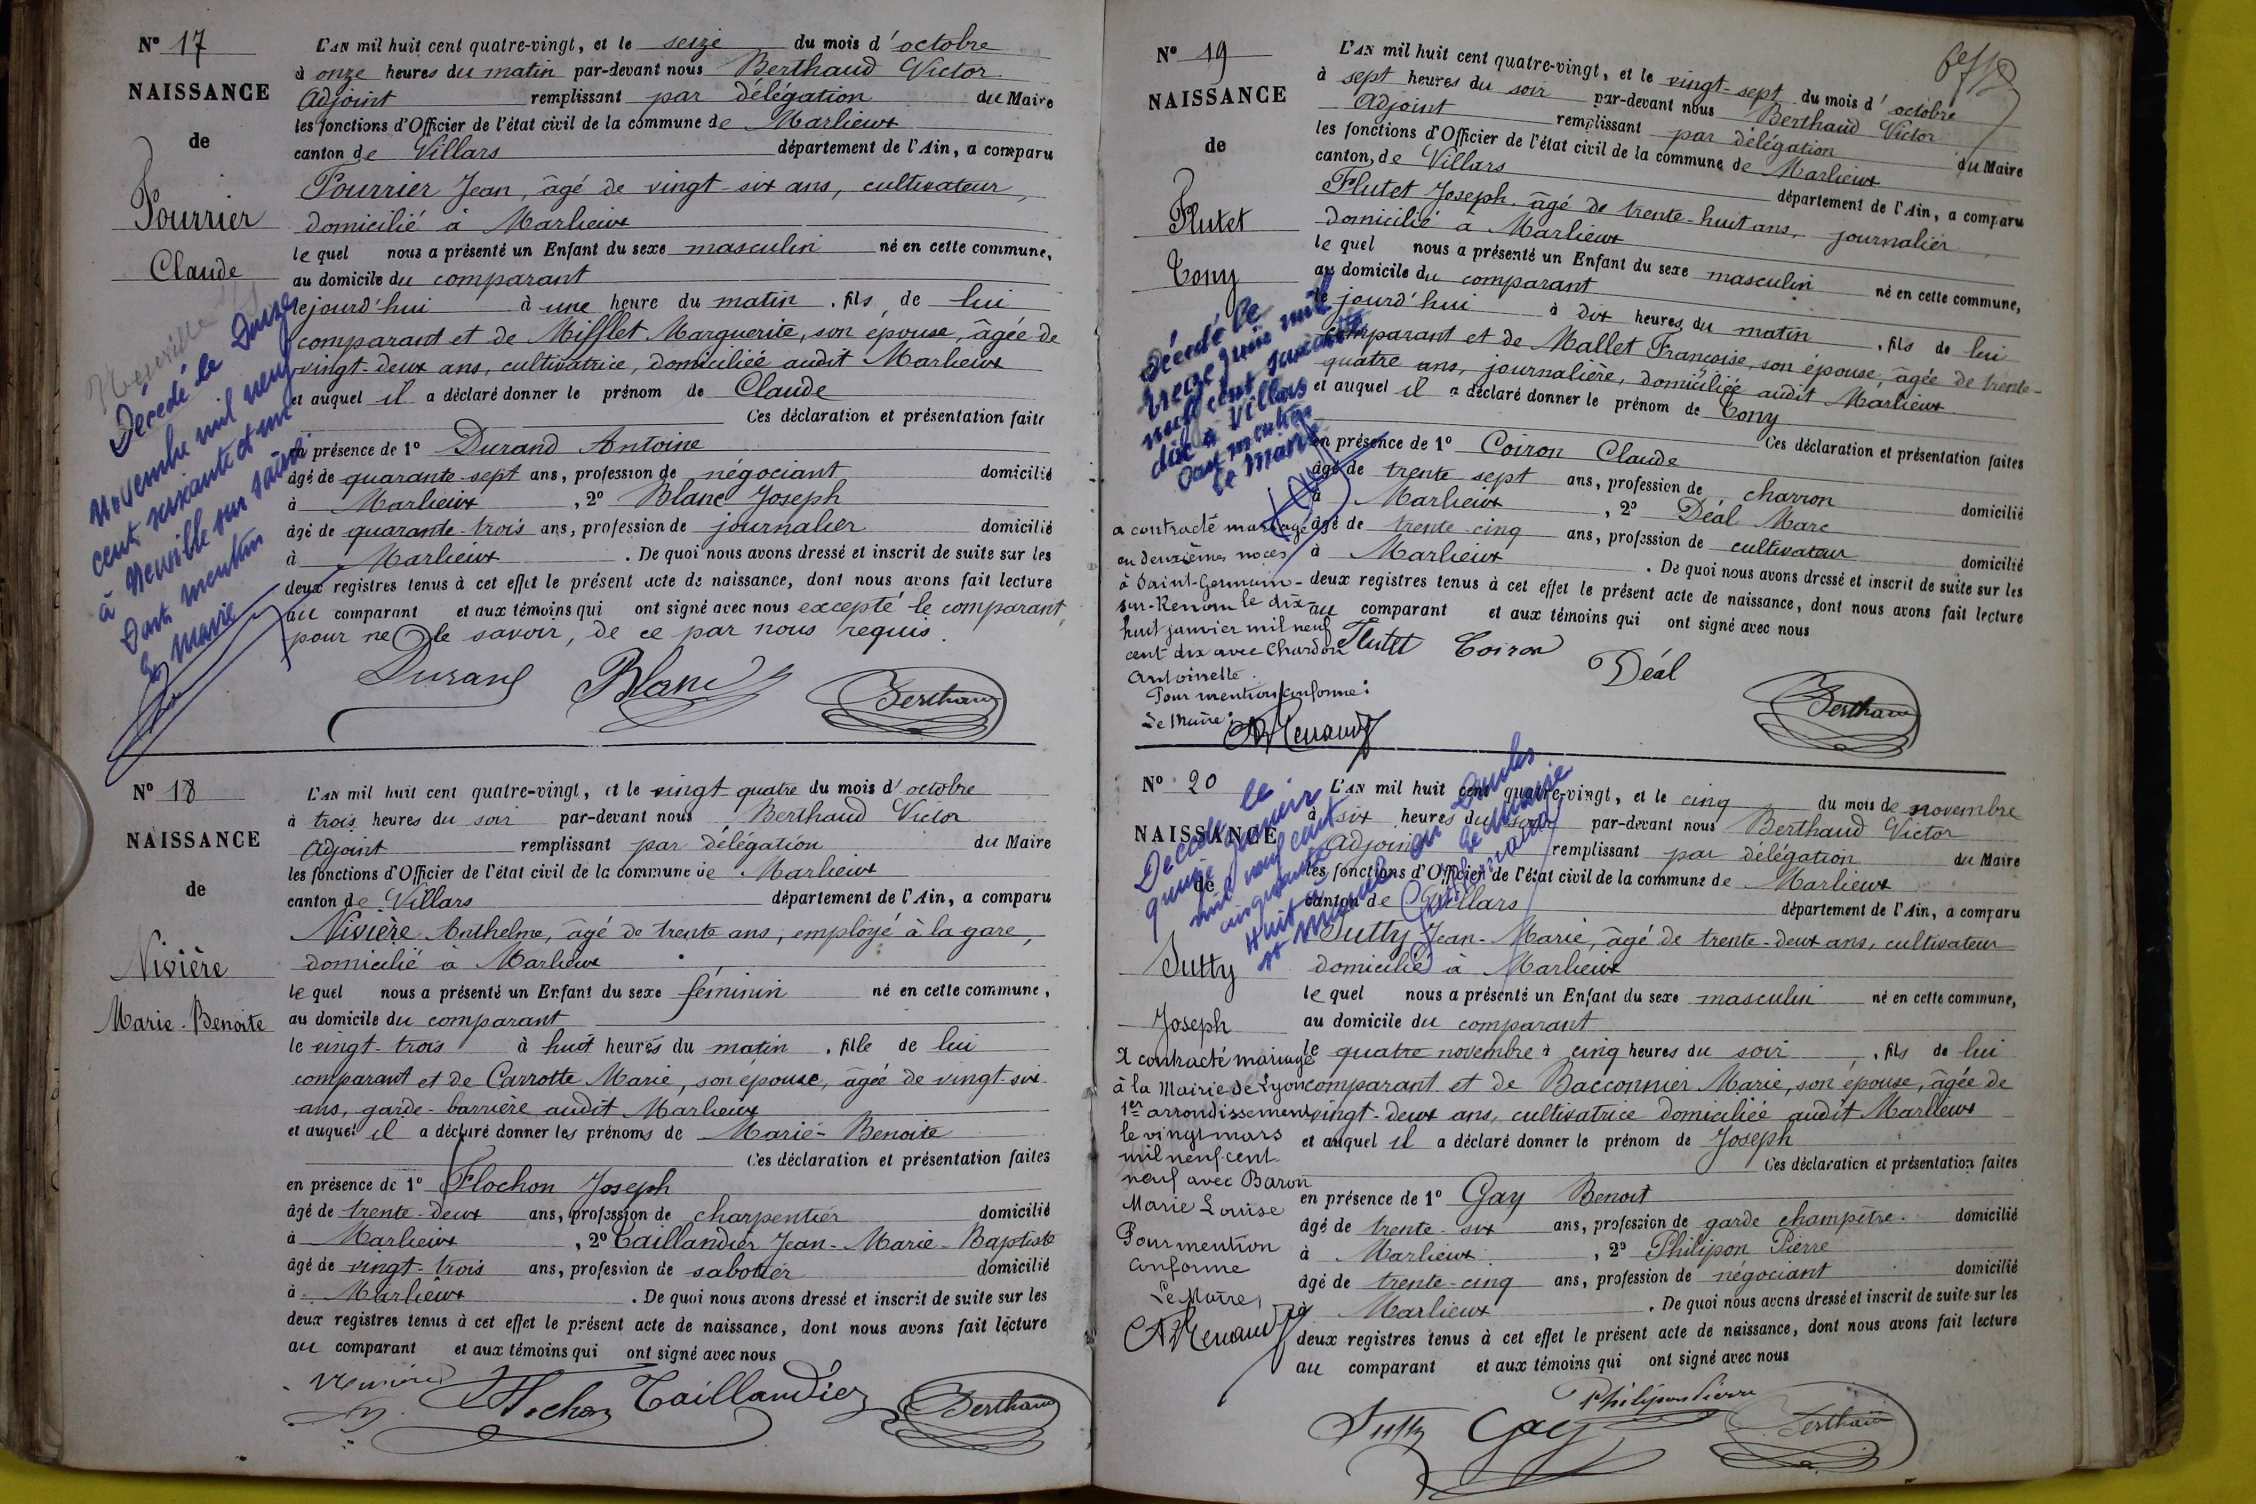 N° 17
NAISSANCE
de
Pourrier
Claude
L'AN mil huit cent quatre-vingt, et le seize du mois d'octobre
à onze heures du matin par-devant nous Berthaud Victor
Adjoint remplissant par délégation du Maire
les fonctions d'Officier de l'état civil de la commune de Marlieux
canton de Villars département de l'Ain, a comparu
Pourrier Jean, âgé de vingt-six ans, cultivateur,
domicilié à Marlieux
le quel nous a présenté un Enfant du sexe masculin né en cette commune,
au domicile du comparant
le jourd'hui à une heure du matin, fils de lui
comparant et de Mifflet Marguerite, son épouse, âgée de
vingt-deux ans, cultivatrice, domiciliée audit Marlieux
et auquel il a déclaré donner le prénom de Claude
Ces déclaration et présentation faite
en présence de 1° Durand Antoine
âgé de quarante-sept ans, profession de négociant domicilié
à Marlieux, 2° Blanc Joseph
âgé de quarante-trois ans, profession de journalier domicilié
à Marlieux. De quoi nous avons dressé et inscrit de suite sur les
deux registres tenus à cet effet le présent acte de naissance, dont nous avons fait lecture
au comparant et aux témoins qui ont signé avec nous excepté le comparant,
pour ne le savoir, de ce par nous requis.
Durand Blanc Berthaud
Neuville
Décédé le Quinze
Novembre mil neuf
cent soixante et un
à Neuville sur
Dont mention
Le Maire
N° 18
NAISSANCE
de
Nivière
Marie-Benoite
L'AN mil huit cent quatre-vingt, et le vingt-quatre du mois d'octobre
à trois heures du soir par-devant nous Berthaud Victor
Adjoint remplissant par délégation du Maire
les fonctions d'Officier de l'état civil de la commune de Marlieux
canton de Villars département de l'Ain, a comparu
Nivière Anthelme, âgé de trente ans, employé à la gare,
domicilié à Marlieux
le quel nous a présenté un Enfant du sexe féminin né en cette commune,
au domicile du comparant
le vingt-trois à huit heures du matin, fille de lui
comparant et de Carrotte Marie, son épouse, âgée de vingt-six
ans, garde-barrière audit Marlieux
et auquel il a déclaré donner les prénoms de Marie-Benoite
Ces déclaration et présentation faites
en présence de 1° Flochon Joseph
âgé de trente-deux ans, profession de charpentier domicilié
à Marlieux, 2° Taillandier Jean-Marie-Baptiste
âgé de vingt-trois ans, profession de sabotier domicilié
à Marlieux. De quoi nous avons dressé et inscrit de suite sur les
deux registres tenus à cet effet le présent acte de naissance, dont nous avons fait lecture
au comparant et aux témoins qui ont signé avec nous
Nivière Flochon Taillandier Berthaud
N° 19
NAISSANCE
de
Flutet
Tony
L'AN mil huit cent quatre-vingt, et le vingt-sept du mois d'octobre
à sept heures du soir par-devant nous Berthaud Victor
Adjoint remplissant par délégation du Maire
les fonctions d'Officier de l'état civil de la commune de Marlieux
canton de Villars département de l'Ain, a comparu
Flutet Joseph, âgé de trente-huit ans, journalier
domicilié à Marlieux
le quel nous a présenté un Enfant du sexe masculin né en cette commune,
au domicile du comparant
le jourd'hui à dix heures du matin, fils de lui
comparant et de Mallet Françoise, son épouse, âgée de trente-
quatre ans, journalière, domiciliée audit Marlieux
et auquel il a déclaré donner le prénom de Tony
Ces déclaration et présentation faites
en présence de 1° Coiron Claude
âgé de trente sept ans, profession de charron domicilié
à Marlieux, 2° Déal Marc
âgé de trente-cinq ans, profession de cultivateur domicilié
à Marlieux. De quoi nous avons dressé et inscrit de suite sur les
deux registres tenus à cet effet le présent acte de naissance, dont nous avons fait lecture
au comparant et aux témoins qui ont signé avec nous
Flutet Coiron Déal Berthaud
Décédé le
treize juin mil
neuf cent soixante
dix à Villars
Dont mention
Le Maire
a contracté mariage
en deuxièmes noces
à Saint-Germain-
sur-Renom le dix-
huit janvier mil neuf
cent dix avec Chardon
Antoinette.
Pour mention conforme:
Le Maire:
N° 20
NAISSANCE
de
Sutty
Joseph
L'AN mil huit cent quatre-vingt, et le cinq du mois de novembre
à six heures du soir par-devant nous Berthaud Victor
Adjoint remplissant par délégation du Maire
les fonctions d'Officier de l'état civil de la commune de Marlieux
canton de Villars département de l'Ain, a comparu
Sutty Jean-Marie, âgé de trente-deux ans, cultivateur
domicilié à Marlieux
le quel nous a présenté un Enfant du sexe masculin né en cette commune,
au domicile du comparant
le quatre novembre à cinq heures du soir, fils de lui
comparant et de Bacconnier Marie, son épouse, âgée de
vingt-deux ans, cultivatrice domiciliée audit Marlieux
et auquel il a déclaré donner le prénom de Joseph
Ces déclaration et présentation faites
en présence de 1° Gay Benoit
âgé de trente-six ans, profession de garde champêtre domicilié
à Marlieux, 2° Philipon Pierre
âgé de trente-cinq ans, profession de négociant domicilié
à Marlieux. De quoi nous avons dressé et inscrit de suite sur les
deux registres tenus à cet effet le présent acte de naissance, dont nous avons fait lecture
au comparant et aux témoins qui ont signé avec nous
Sutty Gay Philipon Pierre Berthaud
Décédé le
quinze janvier
mil neuf cent
cinquante
huit à
le Maire
A contracté mariage
à la Mairie de Lyon
1er arrondissement
le vingt mars
mil neuf cent
neuf avec Baron
Marie Louise
Pour mention
conforme
Le Maire,